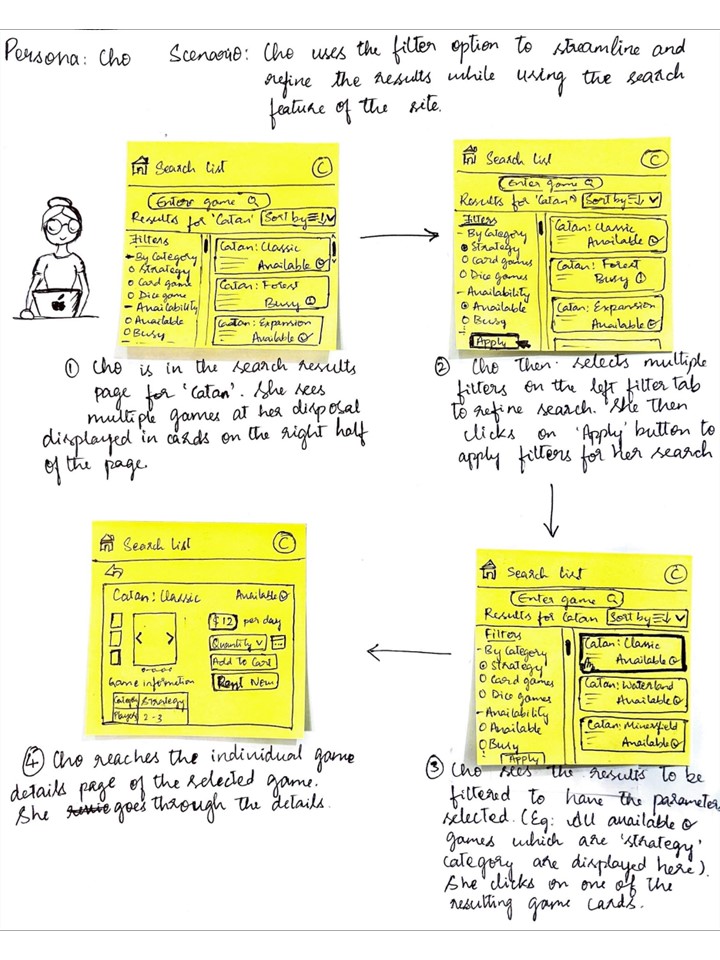 Persona: Cho Scenario: Cho uses the filter option to streamline and
refine the results while using the search
feature of the site.
Search list C
Enter game
Results for 'Catan' Sort by
Filters
- By Category
Strategy
Card game
Dice game
- Availability
Available
Busy
Catan: Classic
Available
Catan: Forest
Busy
Catan: Expansion
Available
① Cho is in the search results
page for 'Catan'. She sees
multiple games at her disposal
displayed in cards on the right half
of the page.
Search list C
Enter game
Results for 'Catan' Sort by
Filters
- By Category
Strategy
Card games
Dice games
- Availability
Available
Busy
Apply
Catan: Classic
Available
Catan: Forest
Busy
Catan: Expansion
Available
② Cho then selects multiple
filters on the left filter tab
to refine search. She then
clicks on 'Apply' button to
apply filters for her search
Search list C
Enter game
Results for Catan Sort by
Filters
- By Category
Strategy
Card games
Dice games
- Availability
Available
Busy
Apply
Catan: Classic
Available
Catan: Waterland
Available
Catan: Minesfield
Available
③ Cho sees the results to be
filtered to have the parameters
selected. (Eg: All available
games which are 'strategy'
category are displayed here).
She clicks on one of the
resulting game cards.
Search list C
Catan: Classic Available
$12 per day
Quantity
Add to Cart
Rent Now
Game information
Category Strategy
Players 2-3
④ Cho reaches the individual game
details page of the selected game.
She goes through the details.